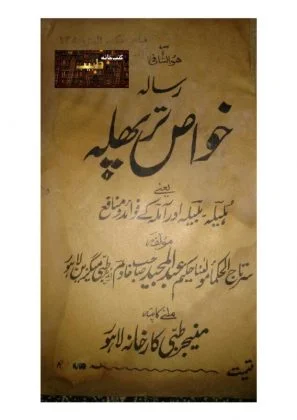 کتب خانہ طبیب
ھوالشافی
رسالہ
خواص تربھلہ
یعنے
ہلیلہ۔ بلیلہ اور آملہ کے فوائد و منافع
مولفہ
سرتاج الحکما مولٰنا حکیم عبدالمجید صاحب خادم مدیر طبی میگزین لاہور
ملنے کا پتہ
منیجر طبی کارخانہ لاہور
قیمت